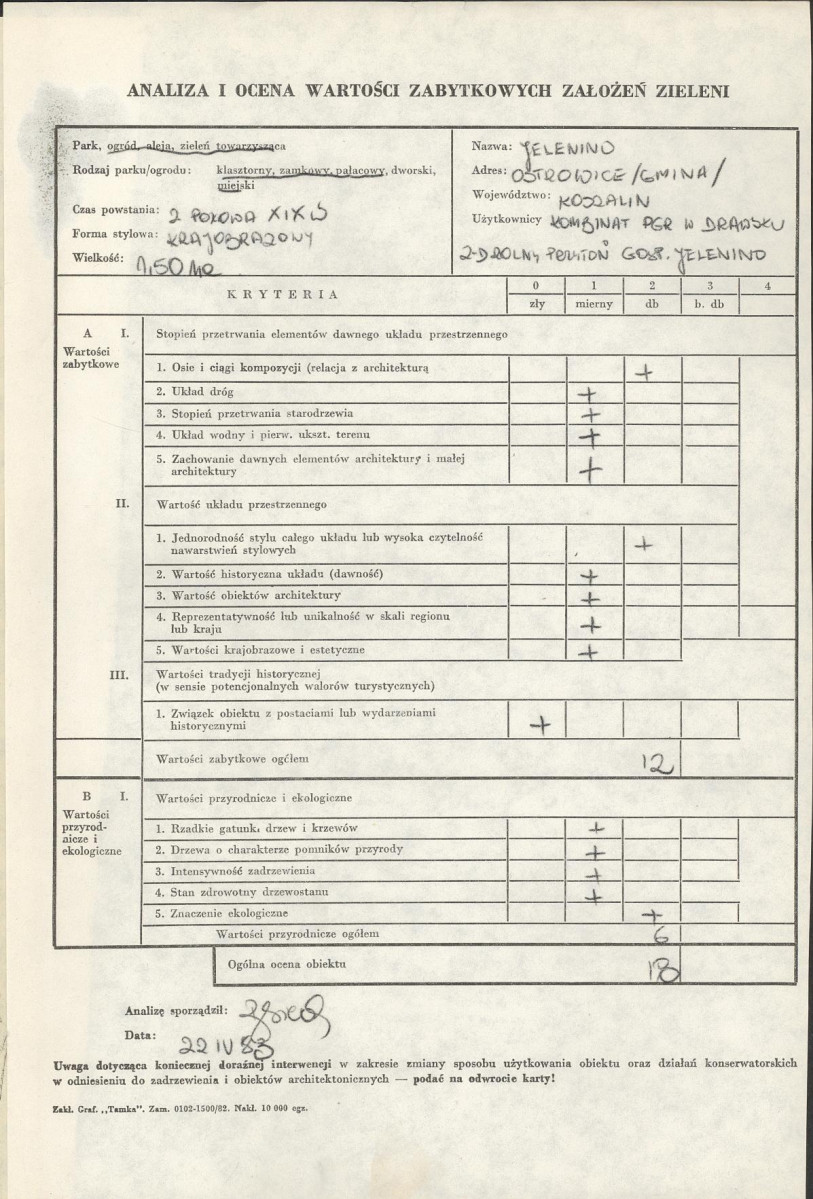 ANALIZA I OCENA WARTOŚCI ZABYTKOWYCH ZAŁOŻEŃ ZIELENI
Park, ogród, aleja, zieleń towarzysząca
Rodzaj parku/ogrodu: klasztorny, zamkowy, pałacowy, dworski,
miejski
Czas powstania: 2 POŁOWA XIX W
Forma stylowa: KRAJOBRAZOWY
Wielkość: 1,50 ha
Nazwa: JELENINO
Adres: OSTROWICE /GMINA/
Województwo: KOSZALIN
Użytkownicy KOMBINAT PGR W DRAWSKU
GOSP. JELENINO
KRYTERIA
0 1 2 3 4
zły mierny db b. db
A I. Stopień przetrwania elementów dawnego układu przestrzennego
Wartości
zabytkowe
1. Osie i ciągi kompozycji (relacja z architekturą +
2. Układ dróg +
3. Stopień przetrwania starodrzewia +
4. Układ wodny i pierw. ukszt. terenu +
5. Zachowanie dawnych elementów architektury i małej
architektury +
II. Wartość układu przestrzennego
1. Jednorodność stylu całego układu lub wysoka czytelność
nawarstwień stylowych +
2. Wartość historyczna układu (dawność) +
3. Wartość obiektów architektury +
4. Reprezentatywność lub unikalność w skali regionu
lub kraju +
5. Wartości krajobrazowe i estetyczne +
III. Wartości tradycji historycznej
(w sensie potencjonalnych walorów turystycznych)
1. Związek obiektu z postaciami lub wydarzeniami
historycznymi +
Wartości zabytkowe ogółem 12
B I. Wartości przyrodnicze i ekologiczne
Wartości
przyrod-
nicze i
ekologiczne
1. Rzadkie gatunki drzew i krzewów +
2. Drzewa o charakterze pomników przyrody +
3. Intensywność zadrzewienia +
4. Stan zdrowotny drzewostanu +
5. Znaczenie ekologiczne +
Wartości przyrodnicze ogółem 6
Ogólna ocena obiektu 18
Analizę sporządził:
Data: 22 IV 83
Uwaga dotycząca koniecznej doraźnej interwencji w zakresie zmiany sposobu użytkowania obiektu oraz działań konserwatorskich
w odniesieniu do zadrzewienia i obiektów architektonicznych — podać na odwrocie karty!
Zakł. Graf. „Tamka". Zam. 0102-1500/82. Nakł. 10 000 egz.